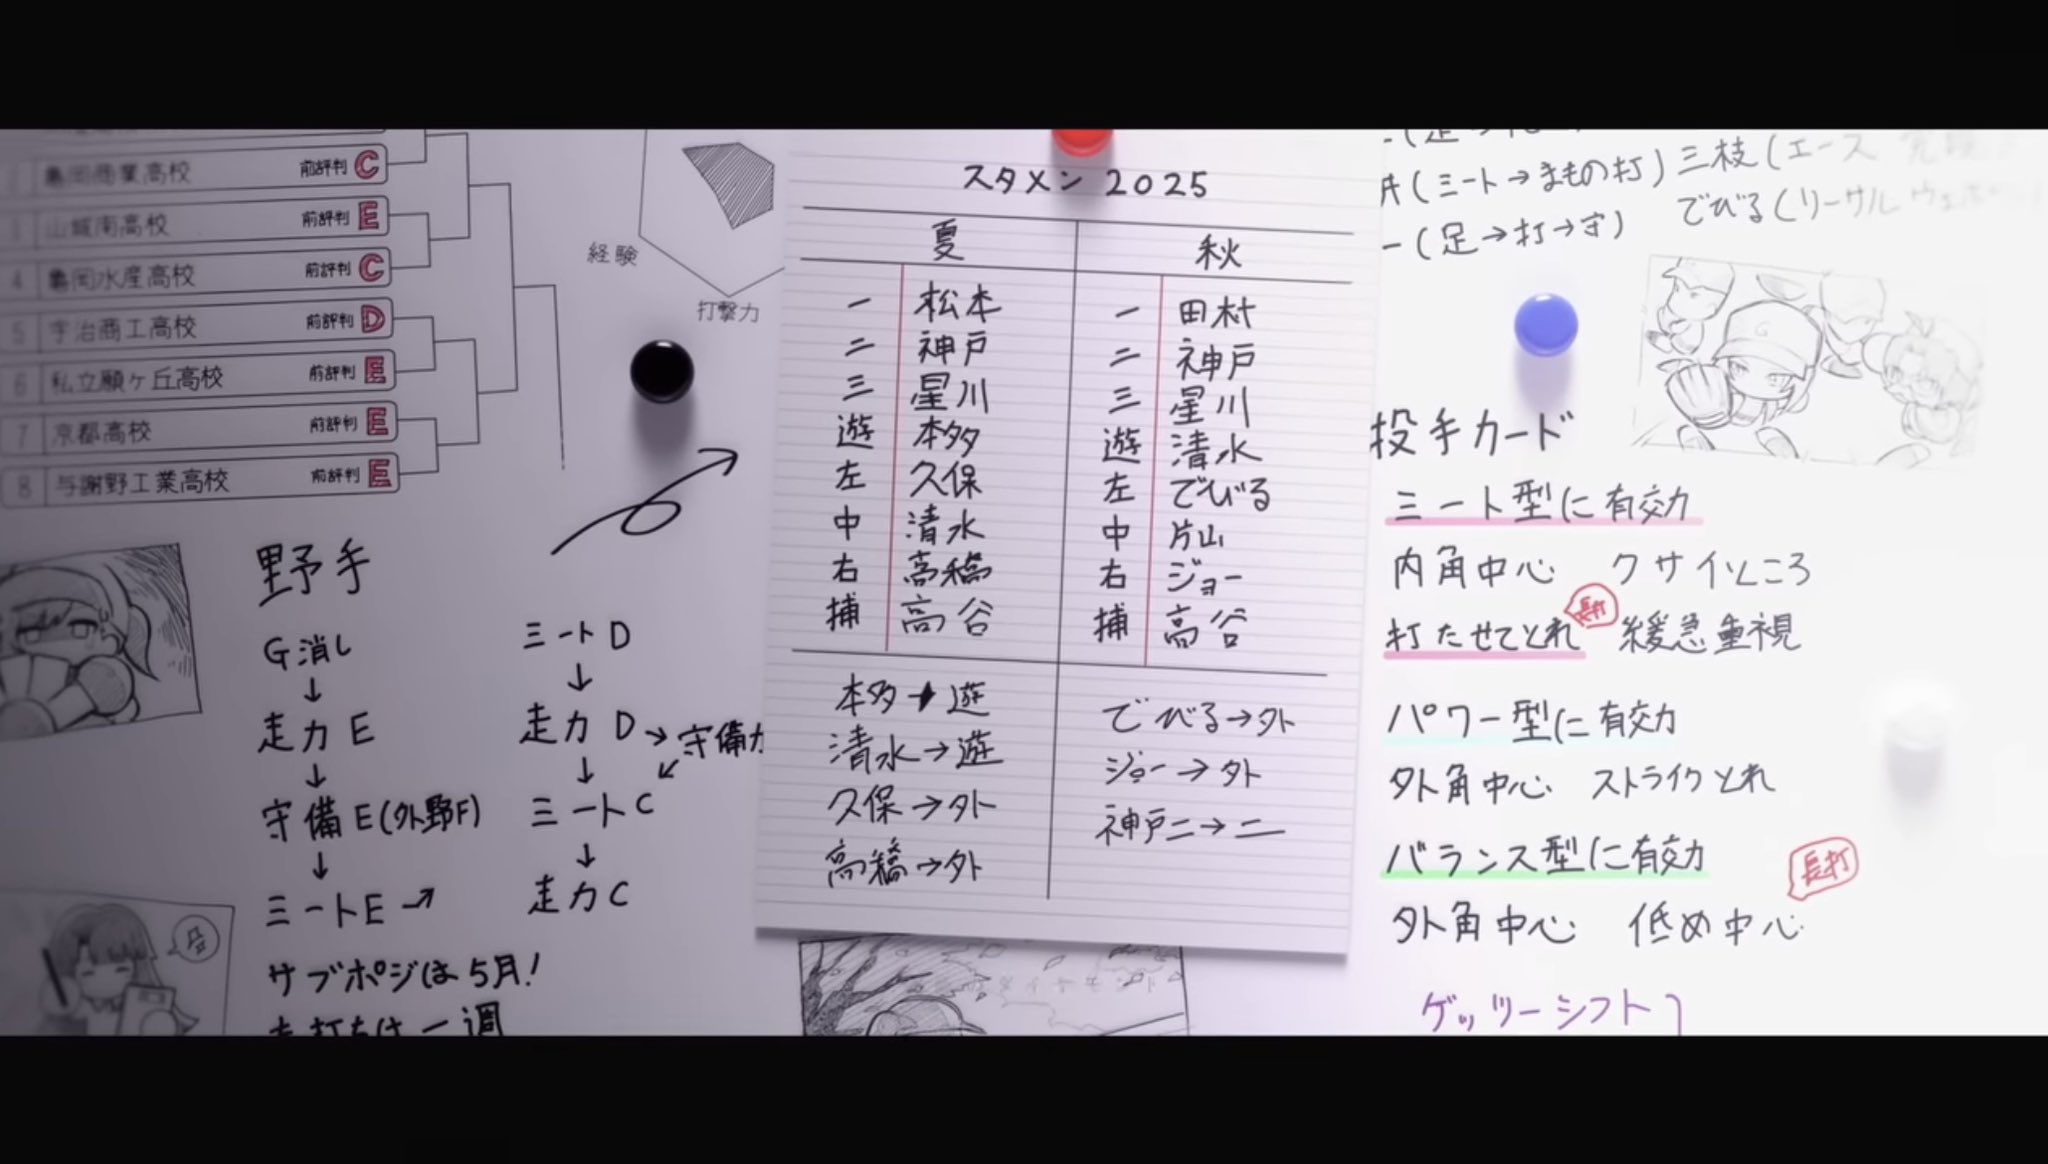 亀岡商業高校 前評判 C
3 山城南高校 前評判 E
4 亀岡水産高校 前評判 C
5 宇治商工高校 前評判 D
6 私立願ヶ丘高校 前評判 E
7 京都高校 前評判 E
8 与謝野工業高校 前評判 E
経験
打撃力
野手
G消し
↓
走力 E
↓
守備 E(外野F)
↓
ミートE→
サブポジは5月!
一週
ミートD
↓
走力 D→守備力
↓
ミートC
↓
走力 C
スタメン 2025
夏
一 松本
二 神戸
三 星川
遊 本多
左 久保
中 清水
右 高橋
捕 高谷
本多→遊
清水→遊
久保→外
高橋→外
秋
一 田村
二 神戸
三 星川
遊 清水
左 でびる
中 片山
右 ジョー
捕 高谷
でびる→外
ジョー→外
神戸二→二
(ミート→まもの打)
(足→打→守)
三枝(エース
でびる(リーサルウェポン
投手カード
ミート型に有効
内角中心 クサイところ
打たせてとれ 長打 緩急重視
パワー型に有効
外角中心 ストライクとれ
バランス型に有効
長打
外角中心 低め中心
ゲッツーシフト